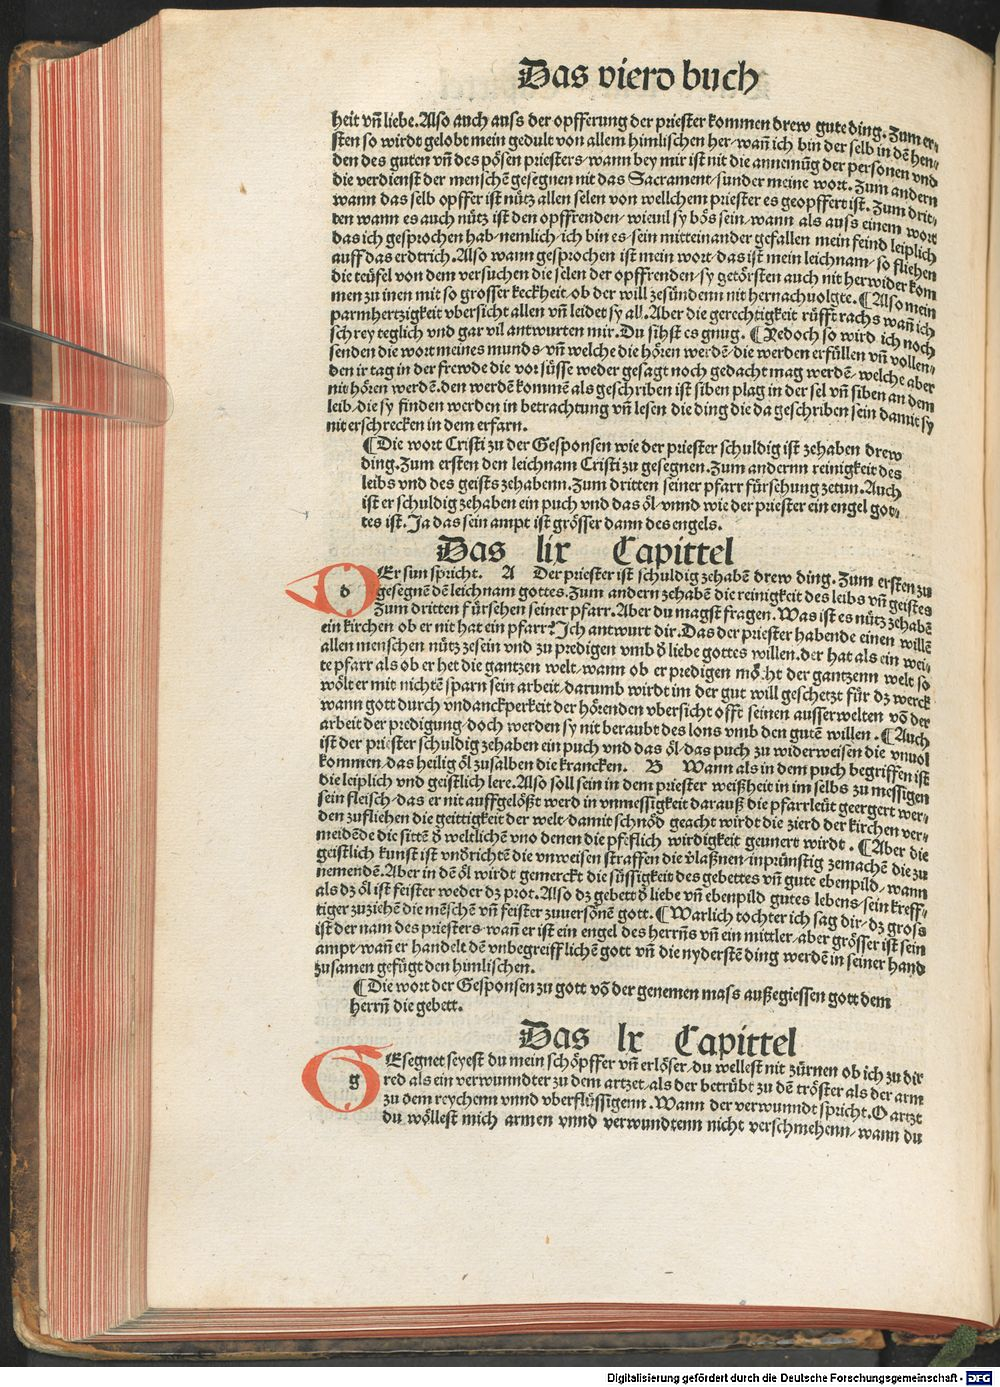 Das vierd buch
heit vn̄ liebe. Also auch auss der opfferung der priester kommen drew gute ding. Zum er⸗
sten so wirdt gelobt mein gedult von allem himlischen her/ wan̄ ich bin der selb in dē hen⸗
den des guten vn̄ des pösen priesters/ wann bey mir ist nit die annemūg der personen vnd
die verdienst der menschē gesegnen nit das Sacrament/ sunder meine wort. Zum andern
wann das selb opffer ist nütz allen selen von wellchem priester es geopffert ist. Zum drit⸗
ten wann es auch nütz ist den opffrenden/ wieuil sy bös sein/ wann als auss einem wort
das ich gesprochen hab/ nemlich/ ich bin es/ sein mitteinander gefallen mein feind leiplich
auff das erdtrich. Also wann gesprochen ist mein wort/ das ist mein leichnam/ so fliehen
die teüfel von dem versuchen die selen der opffrenden/ sy getörsten auch nit herwider kom
men zu inen mit so grosser keckheit/ ob der will zesündenn nit hernachuolgte. ¶ Also mein
parmhertzigkeit vbersicht allen vn̄ leidet sy all. Aber die gerechtigkeit rüfft rachs wan̄ ich
schrey teglich vnd gar vil antwurten mir. Du sihst es gnug. ¶ Yedoch so wird ich noch
senden die wort meines munds/ vn̄ welche die hören werdē/ die werden erfüllen vn̄ vollen⸗
den ir tag in der frewde die vor süsse weder gesagt noch gedacht mag werdē/ welche aber
nit hören werdē. den werdē kommē als geschriben ist siben plag in der sel vn̄ siben an dem
leib/ die sy finden werden in betrachtung vn̄ lesen die ding die da geschriben sein damit sy
nit erschrecken in dem erfarn.
¶ Die wort Cristi zu der Gesponsen wie der priester schuldig ist zehaben drew
ding. Zum ersten den leichnam Cristi zu gesegnen. Zum andernn reinigkeit des
leibs vnd des geists zehabenn. Zum dritten seiner pfarr fürsehung zetun. Auch
ist er schuldig zehaben ein puch vnd das öl/ vnnd wie der priester ein engel got⸗
tes ist. Ja das sein ampt ist grösser dann des engels.
Das lix Capittel
d Er sun spricht. A Der priester ist schuldig zehabē drew ding. Zum ersten zu
gesegnē dē leichnam gottes. Zum andern zehabē die reinigkeit des leibs vn̄ geistes
Zum dritten fürsehen seiner pfarr. Aber du magst fragen. Was ist es nütz zehabē
ein kirchen ob er nit hat ein pfarr? Ich antwurt dir. Das der priester habende einen willē
allen menschen nütz zesein vnd zu predigen vmb d̕ liebe gottes willen. der hat als ein wei⸗
te pfarr als ob er het die gantzen welt/ wann ob er predigen möcht der gantzenn welt so
wölt er mit nichtē sparn sein arbeit/ darumb wirdt im der gut will geschetzt für dz werck
wann gott durch vndanckperkeit der hörenden vbersicht offt seinen ausserwelten vō der
arbeit der predigung/ doch werden sy nit beraubt des lons vmb den gutē willen. ¶ Auch
ist der priester schuldig zehaben ein puch vnd das öl/ das puch zu widerweisen die vnuol
kommen/ das heilig öl zusalben die krancken. B Wann als in dem puch begriffen ist
die leiplich vnd geistlich lere. Also soll sein in dem priester weißheit in im selbs zu messigen
sein fleisch/ das er nit auffgelößt werd in vnmessigkeit darauß die pfarrleüt geergert wer⸗
den zufliehen die geittigkeit der welt/ damit schnöd geacht wirdt die zierd der kirchen ver⸗
meidēde die sittē d̕ weltlichē vnd denen die pfeflich wirdigkeit geunert wirdt. ¶ Aber die
geistlich kunst ist vnd̕richtē die vnweisen straffen die v̕laßnen/ inprünstig zemachē die zu
nemendē. Aber in dē öl wirdt gemerckt die süssigkeit des gebettes vn̄ gute ebenpild/ wann
als dz öl ist feister weder dz prot. Also dz gebett d̕ liebe vn̄ ebenpild gutes lebens/ sein kreff⸗
tiger zuziehē die mēschē vn̄ feister zuuersönē gott. ¶ Warlich tochter ich sag dir/ dz gross
ist der nam des priesters/ wan̄ er ist ein engel des herrn̄s vn̄ ein mittler/ aber grösser ist sein
ampt/ wan̄ er handelt dē vnbegreifflichē gott vn̄ die nyderstē ding werdē in seiner hand
zusamen gefügt den himlischen.
¶ Die wort der Gesponsen zu gott vō der genemen mass außegiessen gott dem
herrn̄ die gebett.
Das lx Capittel
g Esegnet seyest du mein schöpffer vn̄ erlöser/ du wellest nit zürnen ob ich zu dir
red als ein verwunndter zu dem artzet/ als der betrübt zu dē tröster als der arm
zu dem reychenn vnnd vberflüssigenn. Wann der verwunndt spricht. O artzt
du wöllest mich armen vnnd verwundtenn nicht verschmehenn/ wann du
Digitalisierung gefördert durch die Deutsche Forschungsgemeinschaft - DFG